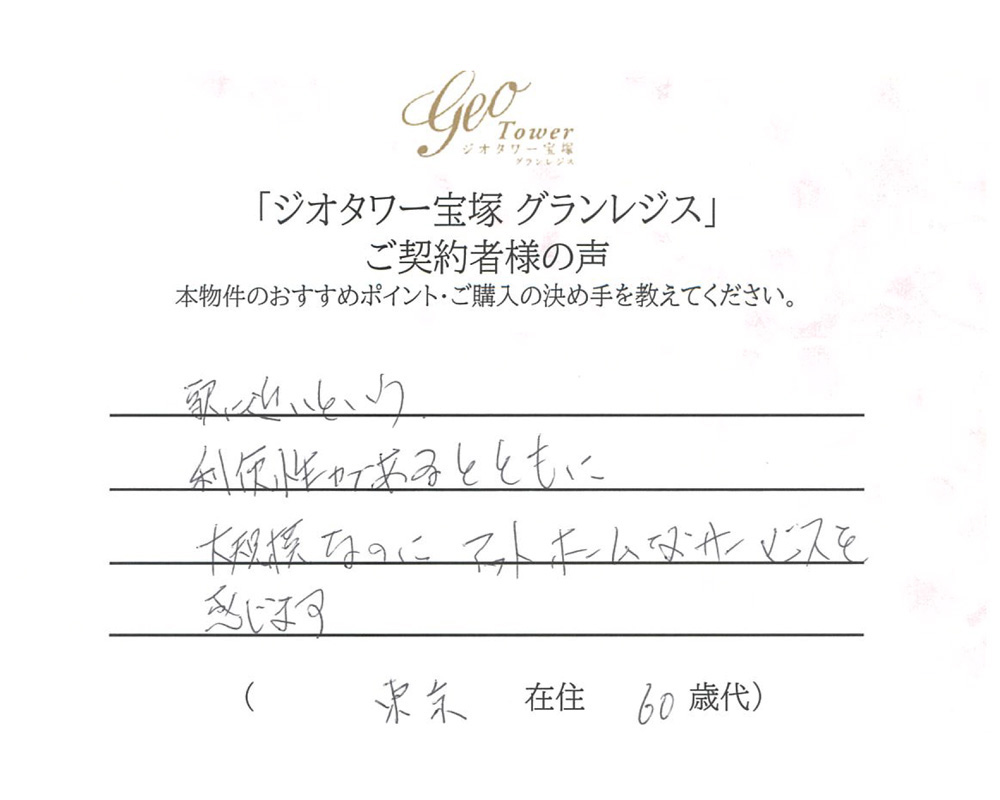 Geo
Tower
ジオタワー宝塚
グランレジス
「ジオタワー宝塚 グランレジス」
ご契約者様の声
本物件のおすすめポイント・ご購入の決め手を教えてください。
駅に近いという
利便性があるとともに
大規模なのに アットホームなサービスを
感じます
( 東京 在住 60 歳代)